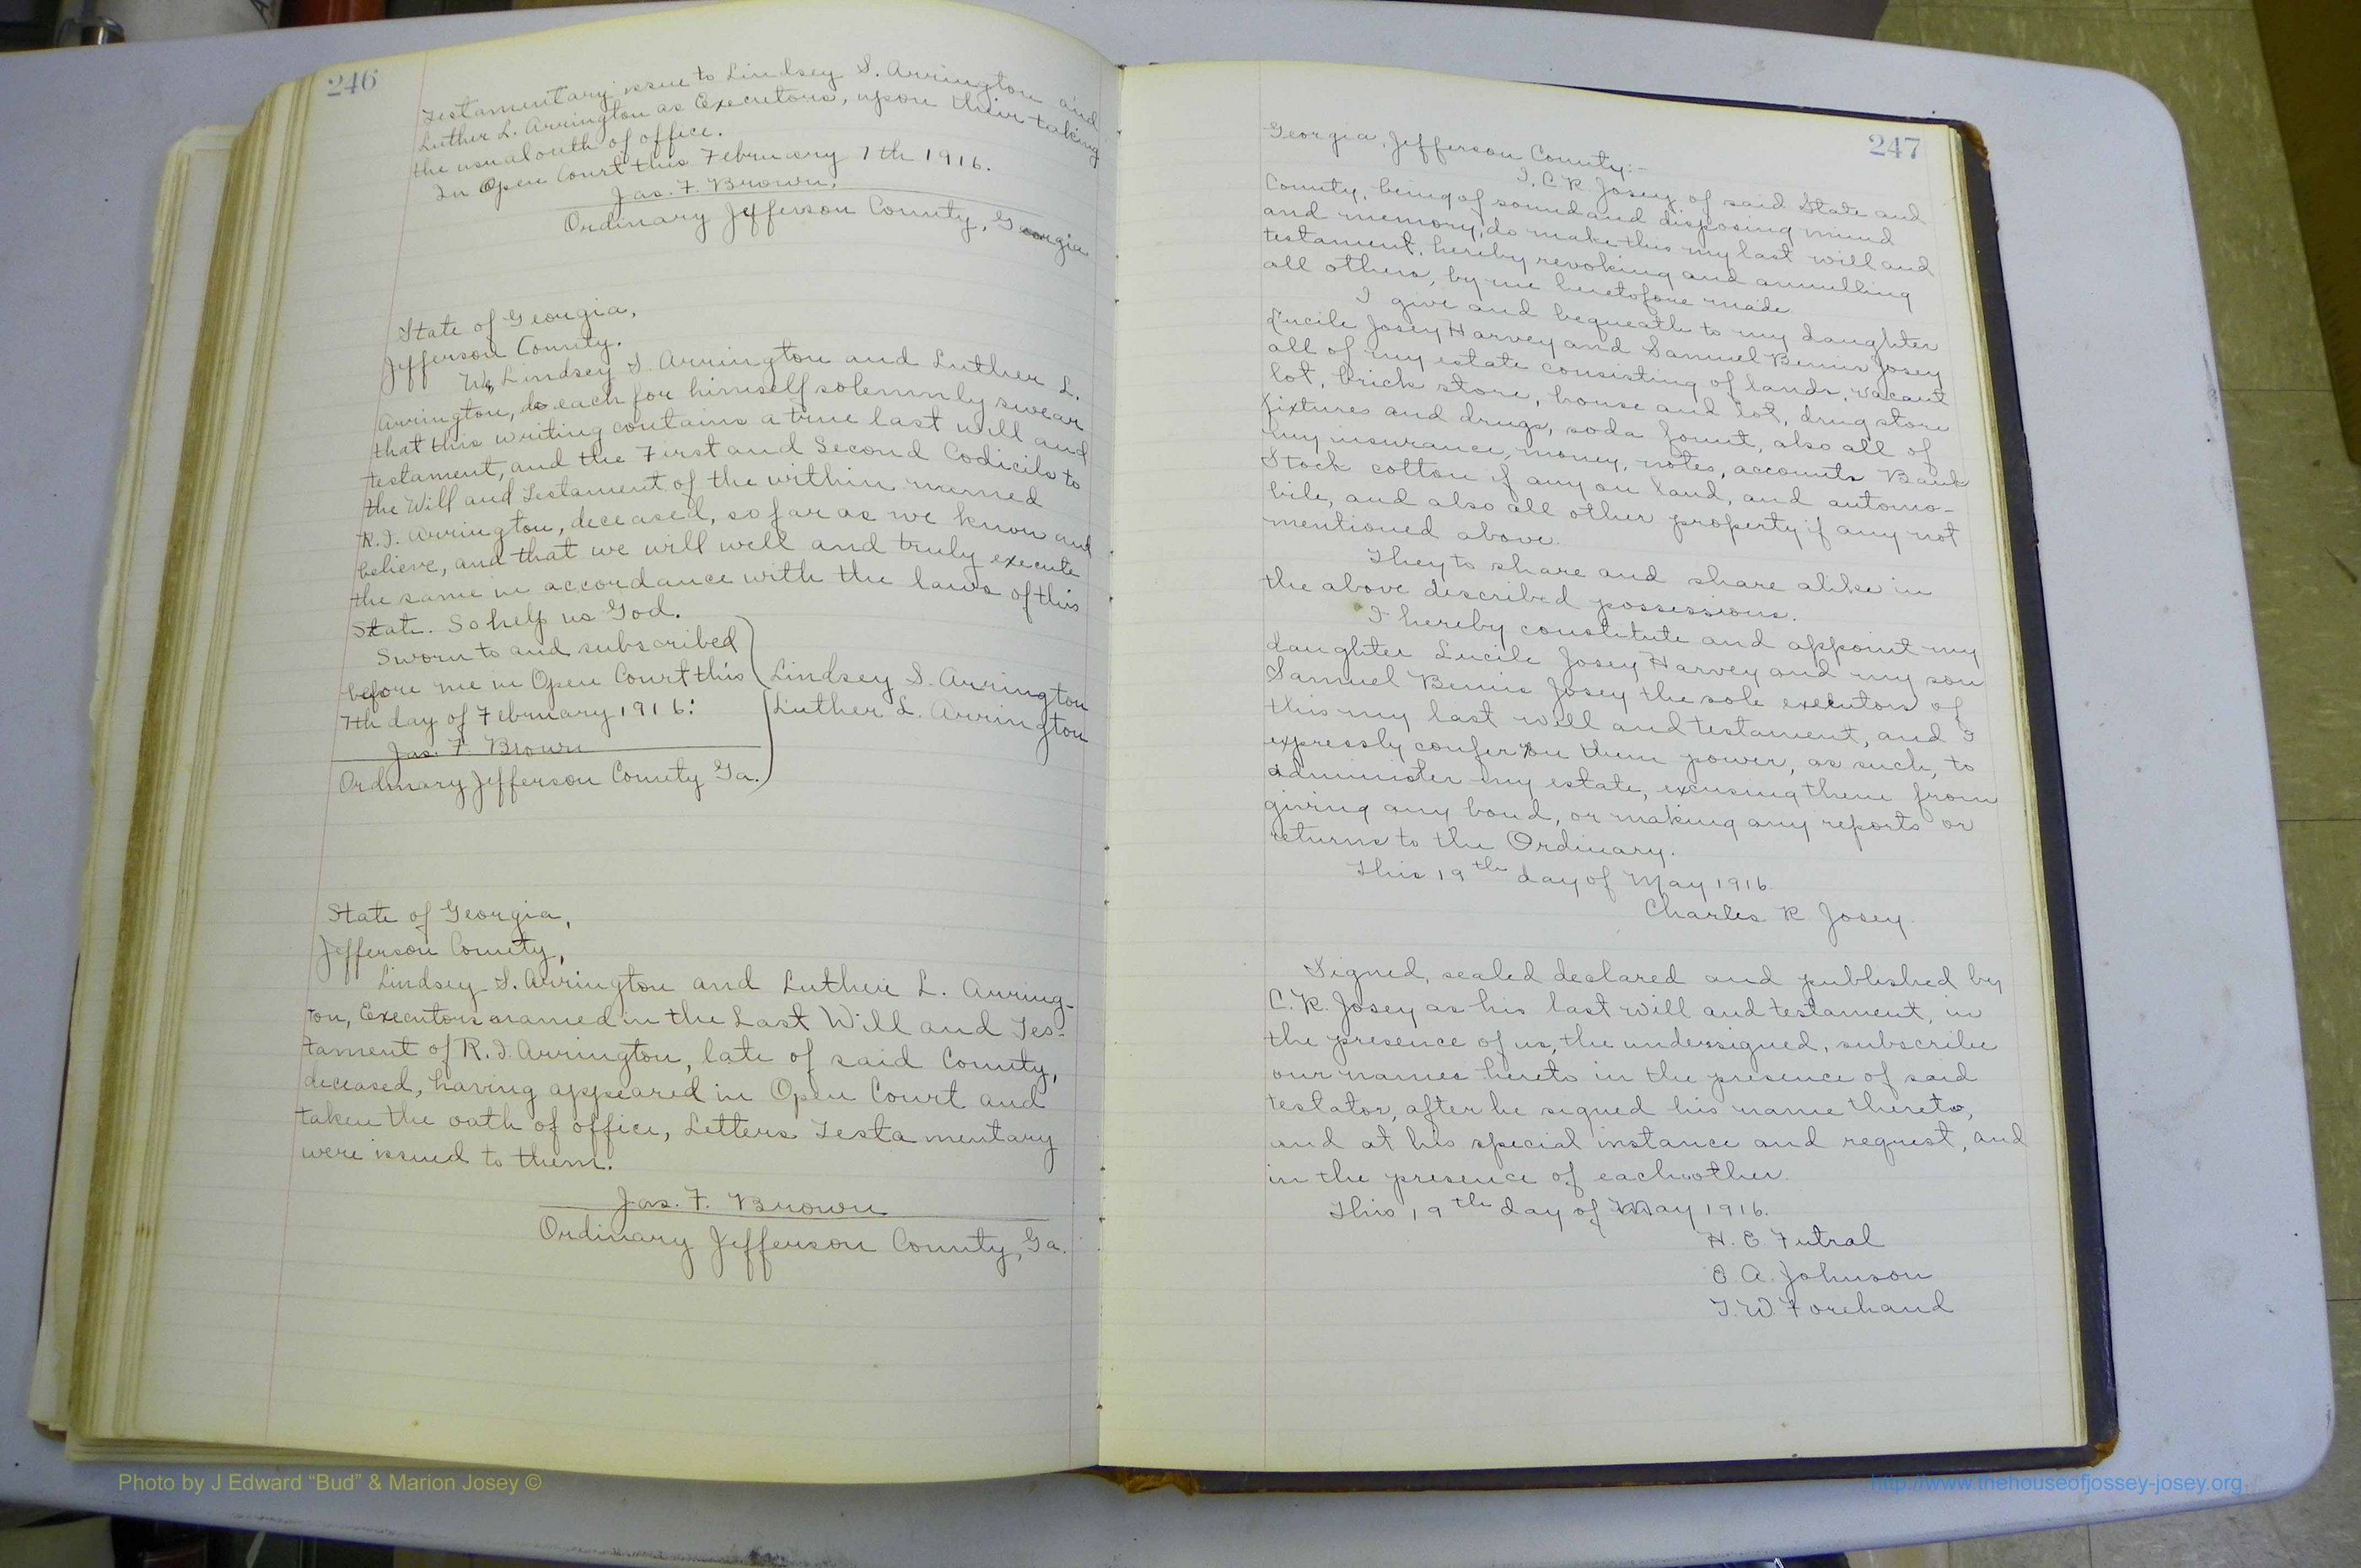 246
Testamentary issue to Lindsey S. Arrington and
Luther L. Arrington as Executors, upon their taking
the usual oath of office.
In Open Court this February 7th 1916.
Jas. F. Brown,
Ordinary Jefferson County, Georgia
State of Georgia,
Jefferson County.
We, Lindsey S. Arrington and Luther L.
Arrington, do each for himself solemnly swear
that this writing contains a true last will and
testament, and the First and Second Codicils to
the Will and Testament of the within named
R.J. Arrington, deceased, so far as we know and
believe, and that we will well and truly execute
the same in accordance with the laws of this
State. So help us God.
Sworn to and subscribed
before me in Open Court this
7th day of February 1916:
Jas. F. Brown
Ordinary Jefferson County Ga.
Lindsey S. Arrington
Luther L. Arrington
State of Georgia,
Jefferson County,
Lindsey S. Arrington and Luther L. Arring-
ton, Executors named in the Last Will and Tes-
tament of R.J. Arrington, late of said County,
deceased, having appeared in Open Court and
taken the oath of office, Letters Testamentary
were issued to them.
Jas. F. Brown
Ordinary Jefferson County, Ga.
247
Georgia, Jefferson County:-
I, C.R. Josey of said State and
County, being of sound and disposing mind
and memory, do make this my last will and
testament, hereby revoking and annulling
all others, by me heretofore made
I give and bequeath to my daughter
Lucile Josey Harvey and Samuel Bemis Josey
all of my estate consisting of lands, vacant
lot, brick store, house and lot, drug store
fixtures and drugs, soda fount, also all of
my insurance, money, notes, accounts Bank
Stock cotton if any on land, and automo-
bile, and also all other property if any not
mentioned above.
They to share and share alike in
the above described possessions.
I hereby constitute and appoint my
daughter Lucile Josey Harvey and my son
Samuel Bemis Josey the sole executors of
this my last will and testament, and I
expressly confer on them power, as such, to
administer my estate, excusing them from
giving any bond, or making any reports or
returns to the Ordinary.
This 19th day of May 1916.
Charles R Josey.
Signed, sealed declared and published by
C.R. Josey as his last will and testament, in
the presence of us, the undersigned, subscribe
our names hereto in the presence of said
testator, after he signed his name thereto,
and at his special instance and request, and
in the presence of each other.
This 19th day of May 1916.
H. C. Futral
C. A. Johnson
T. W. Forehand
Photo by J Edward “Bud” & Marion Josey ©
http://www.thehouseofjossey-josey.org